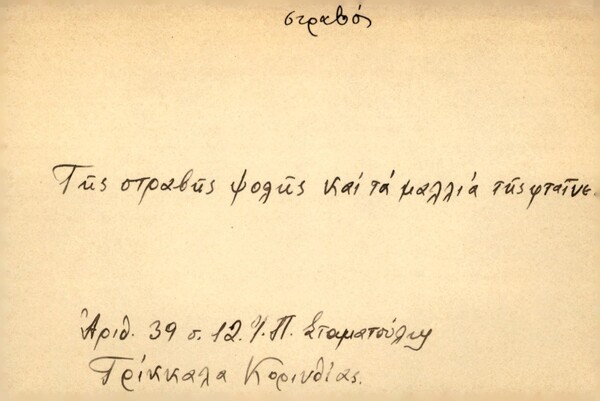 στραβός
Τῆς στραβῆς ψολῆς καί τά μαλλιά τῆς φταῖνε.
Ἀριθ. 39 σ. 12. Ἰ. Π. Σταματούλη
Τρίκκαλα Κορινθίας.